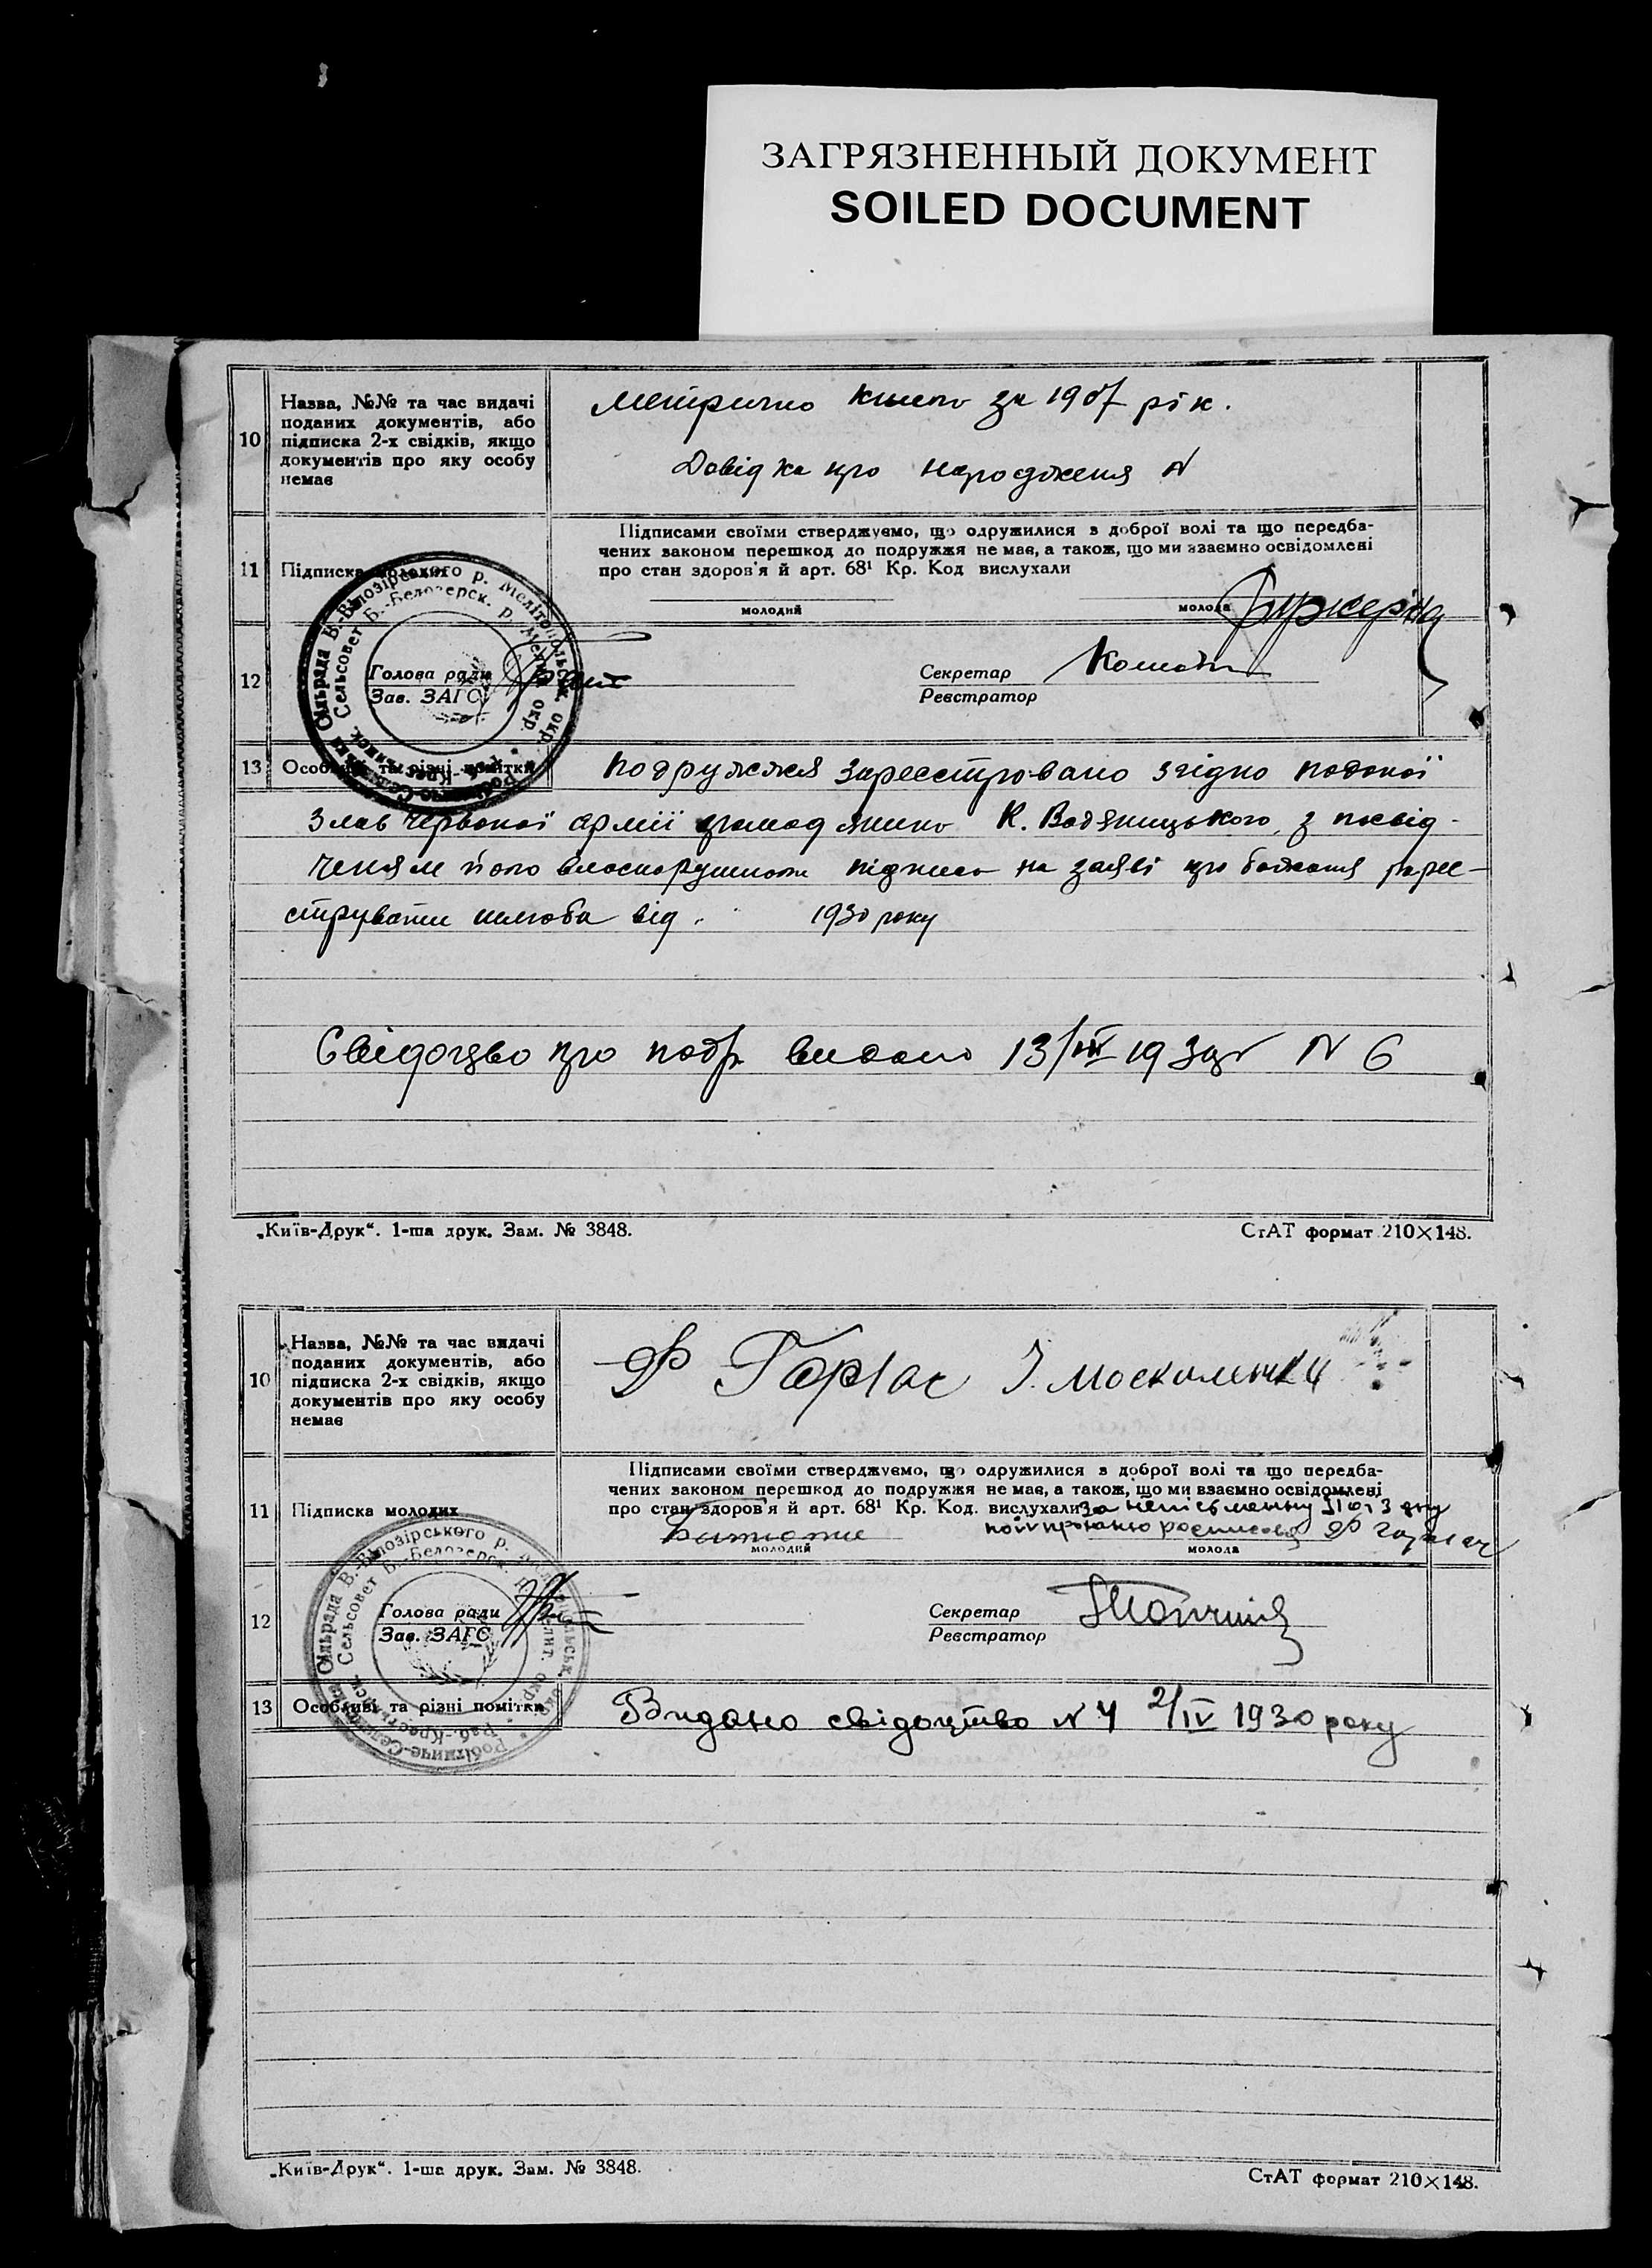 ЗАГРЯЗНЕННЫЙ ДОКУМЕНТ
SOILED DOCUMENT
10
Назва, №№ та час видачі
поданих документів, або
підписка 2-х свідків, якщо
документів про яку особу
немає
за 1907 рік.
Довідка про народження N
11
Підписка молодих
Підписами своїми стверджуємо, що одружилися з доброї волі та що передба-
чених законом перешкод до подружжя не має, а також, що ми взаємно освідомлені
про стан здоров'я й арт. 68¹ Кр. Код вислухали
молодий
молода
12
Голова ради
Зав. ЗАГС
Секретар
Реєстратор
13
Особливі та різні помітки
подружжя зареєстровано згідно поданої
Червоної армії К. Водяницького, з посвід-
ченям його підпису на заяві про бажання зареє-
струвати шлюба від 1930 року
Свідоцтво про подр. видано 13/III 1930 N 6
„Київ-Друк“. 1-ша друк. Зам. № 3848.
СтАТ формат 210×148.
10
Назва, №№ та час видачі
поданих документів, або
підписка 2-х свідків, якщо
документів про яку особу
немає
11
Підписка молодих
Підписами своїми стверджуємо, що одружилися з доброї волі та що передба-
чених законом перешкод до подружжя не має, а також, що ми взаємно освідомлені
про стан здоров'я й арт. 68¹ Кр. Код. вислухали
молодий
молода
12
Голова ради
Зав. ЗАГС
Секретар
Реєстратор
13
Особливі та різні помітки
Видано свідоцтво N 4 2/IV 1930 року
„Київ-Друк“. 1-ша друк. Зам. № 3848.
СтАТ формат 210×148.